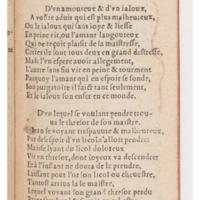 D'vn amoureux & d'vn ialoux,
A vostre aduis qui est plus malheureux,
Ou le ialoux qui sans ioye & liesse
En peine vit, ou l'amant langoureux
Qui ne reçoit plaisir de sa maistresse,
Certes ilz sont tous deux en grand destresse.
Mais l'vn espere auoir allegement,
L'autre sans fin vit en peine & tourment
Parquoy l'amant qui en espoir se fonde,
Son purgatoire il faict tant seulement,
Et le ialoux son enfer en ce monde.
D'vn lequel se voulant pendre trouua
le thresor de son maistre.
Iean se voyant trespauure & malheureux,
Par desespoir d'vn licol s'alloit pendre
Mais ayant du licol douloreux
Vit vn thresor, dont ioyeux va descendre
Et à l'instant ne doute de le prendre,
Laissant pour l'or son licol ou cheuestre,
Tantost arriua là le maistre,
Lequel voyant son grand thresor perdu